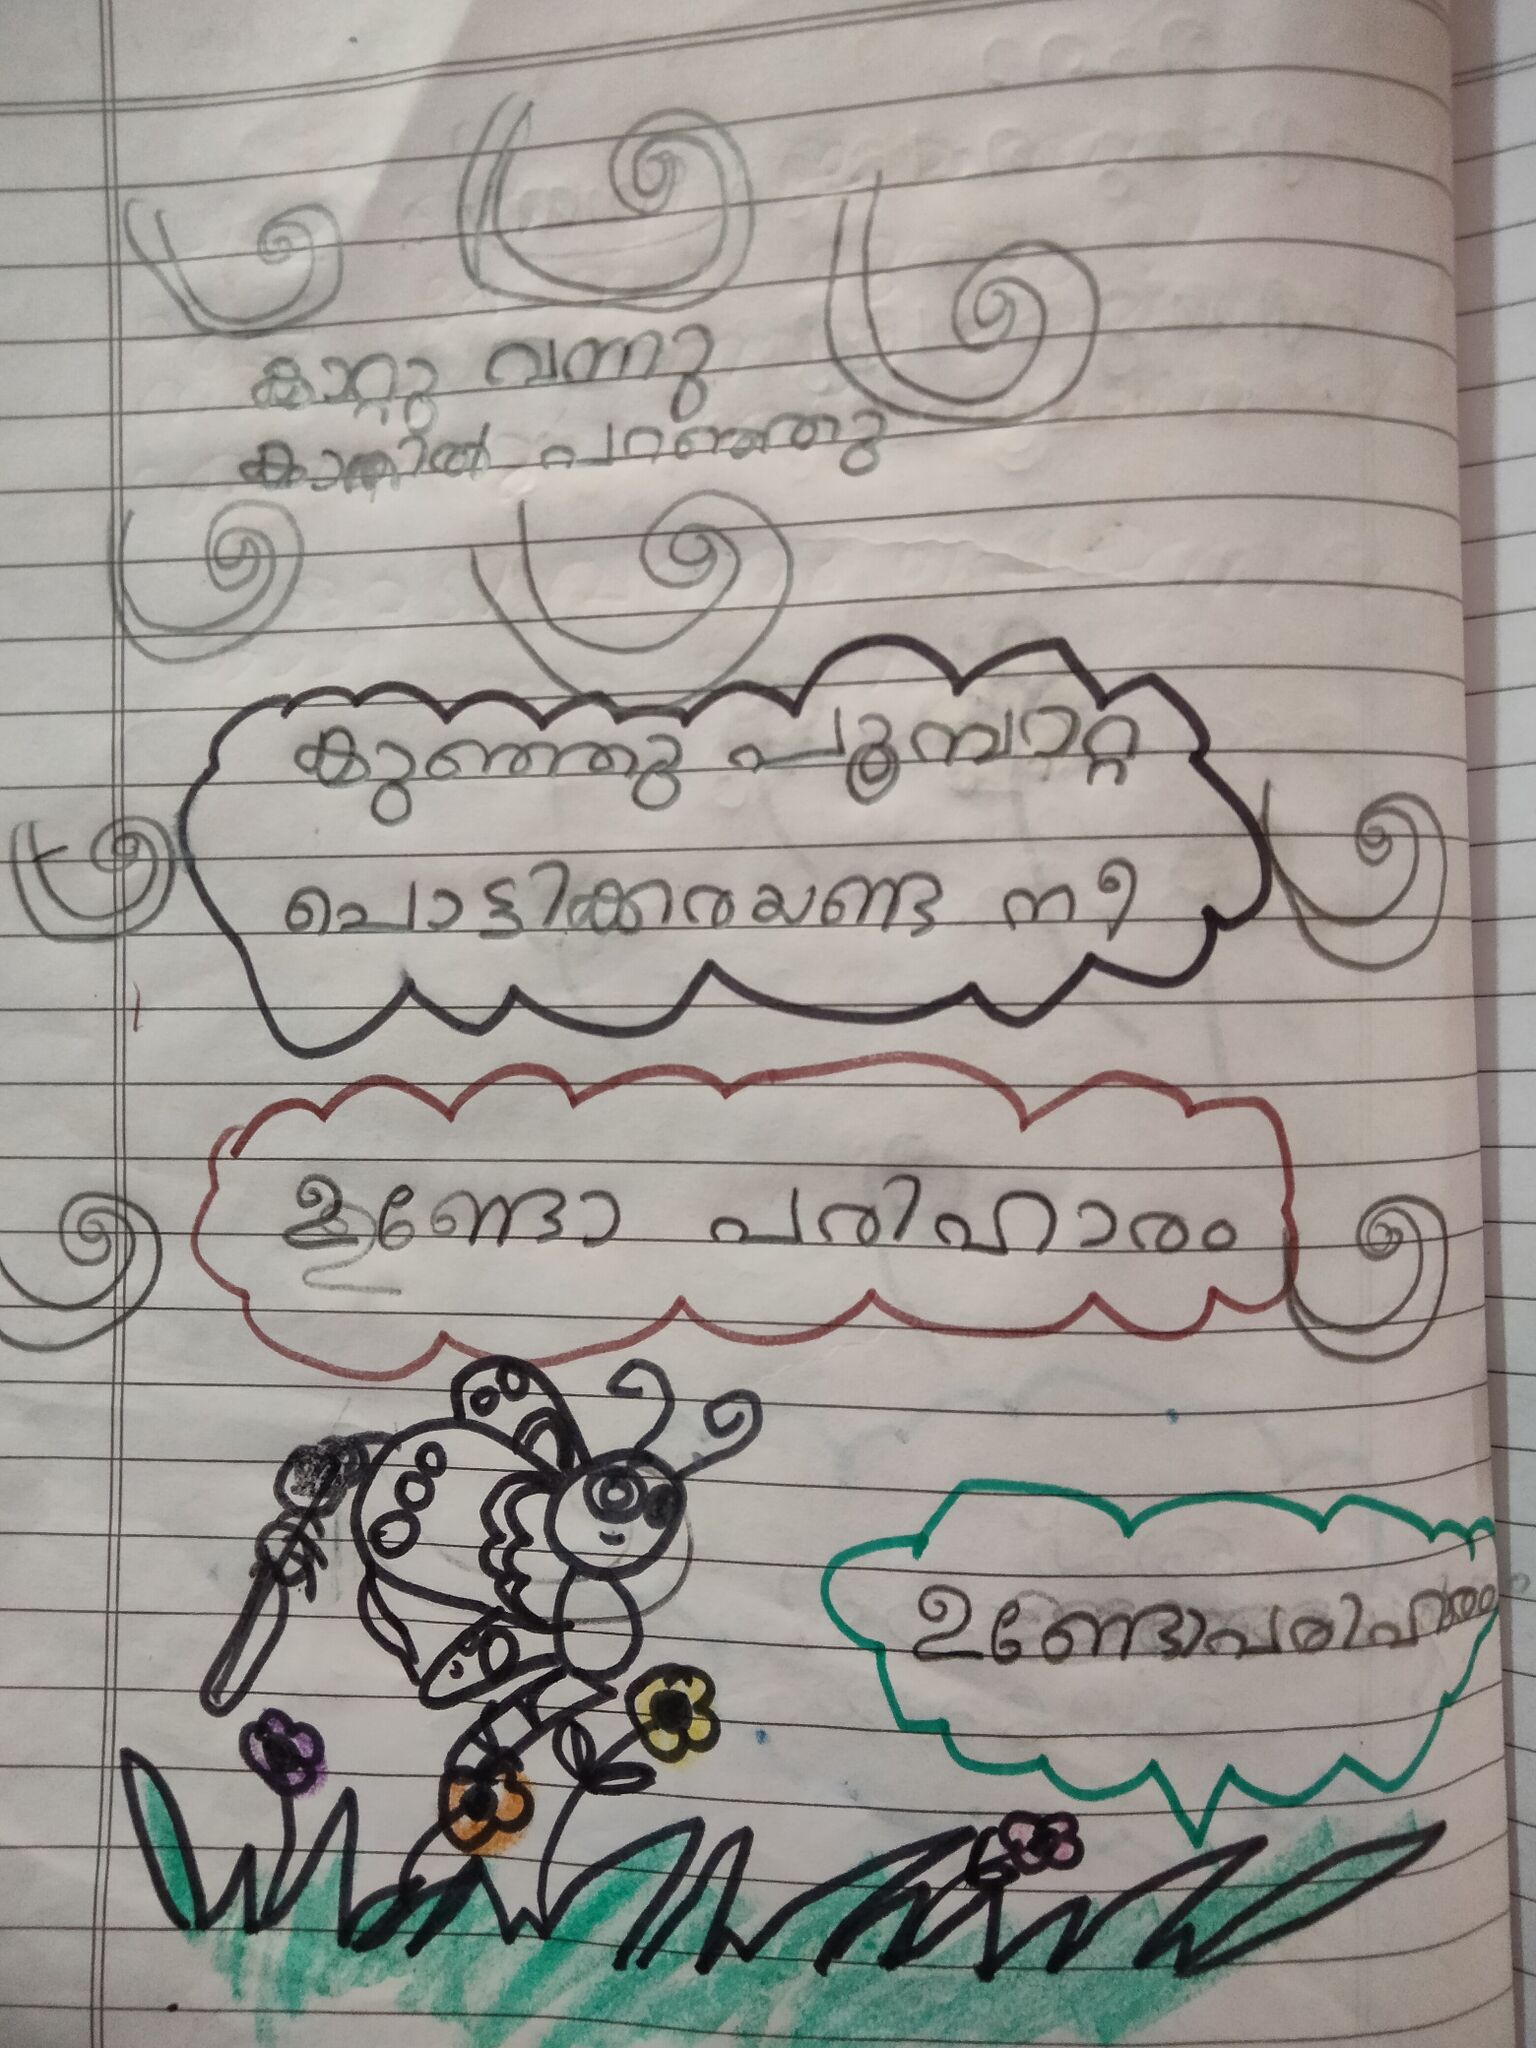 കാറ്റു വന്നു
കാതിൽ പറഞ്ഞു
കുഞ്ഞു പൂമ്പാറ്റ
പൊട്ടിക്കരയണ്ട നീ
ഉണ്ടോ പരിഹാരം
ഉണ്ടോപരിഹാരം